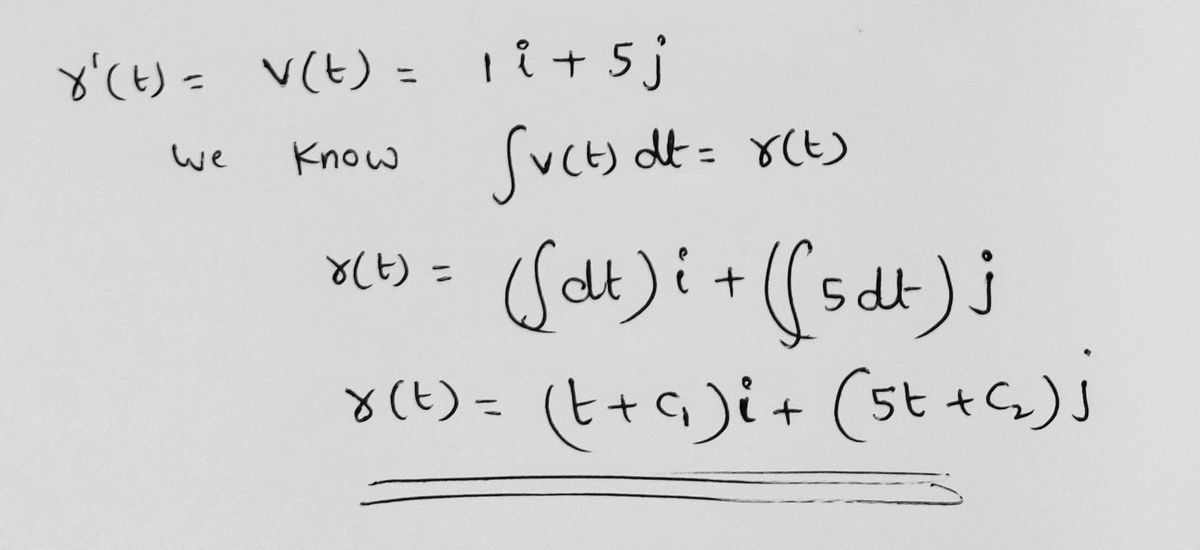 r'(t) = v(t) = 1 i + 5 j
we know ∫v(t) dt = r(t)
r(t) = (∫dt) i + (∫5 dt) j
r(t) = (t + c₁) i + (5t + c₂) j